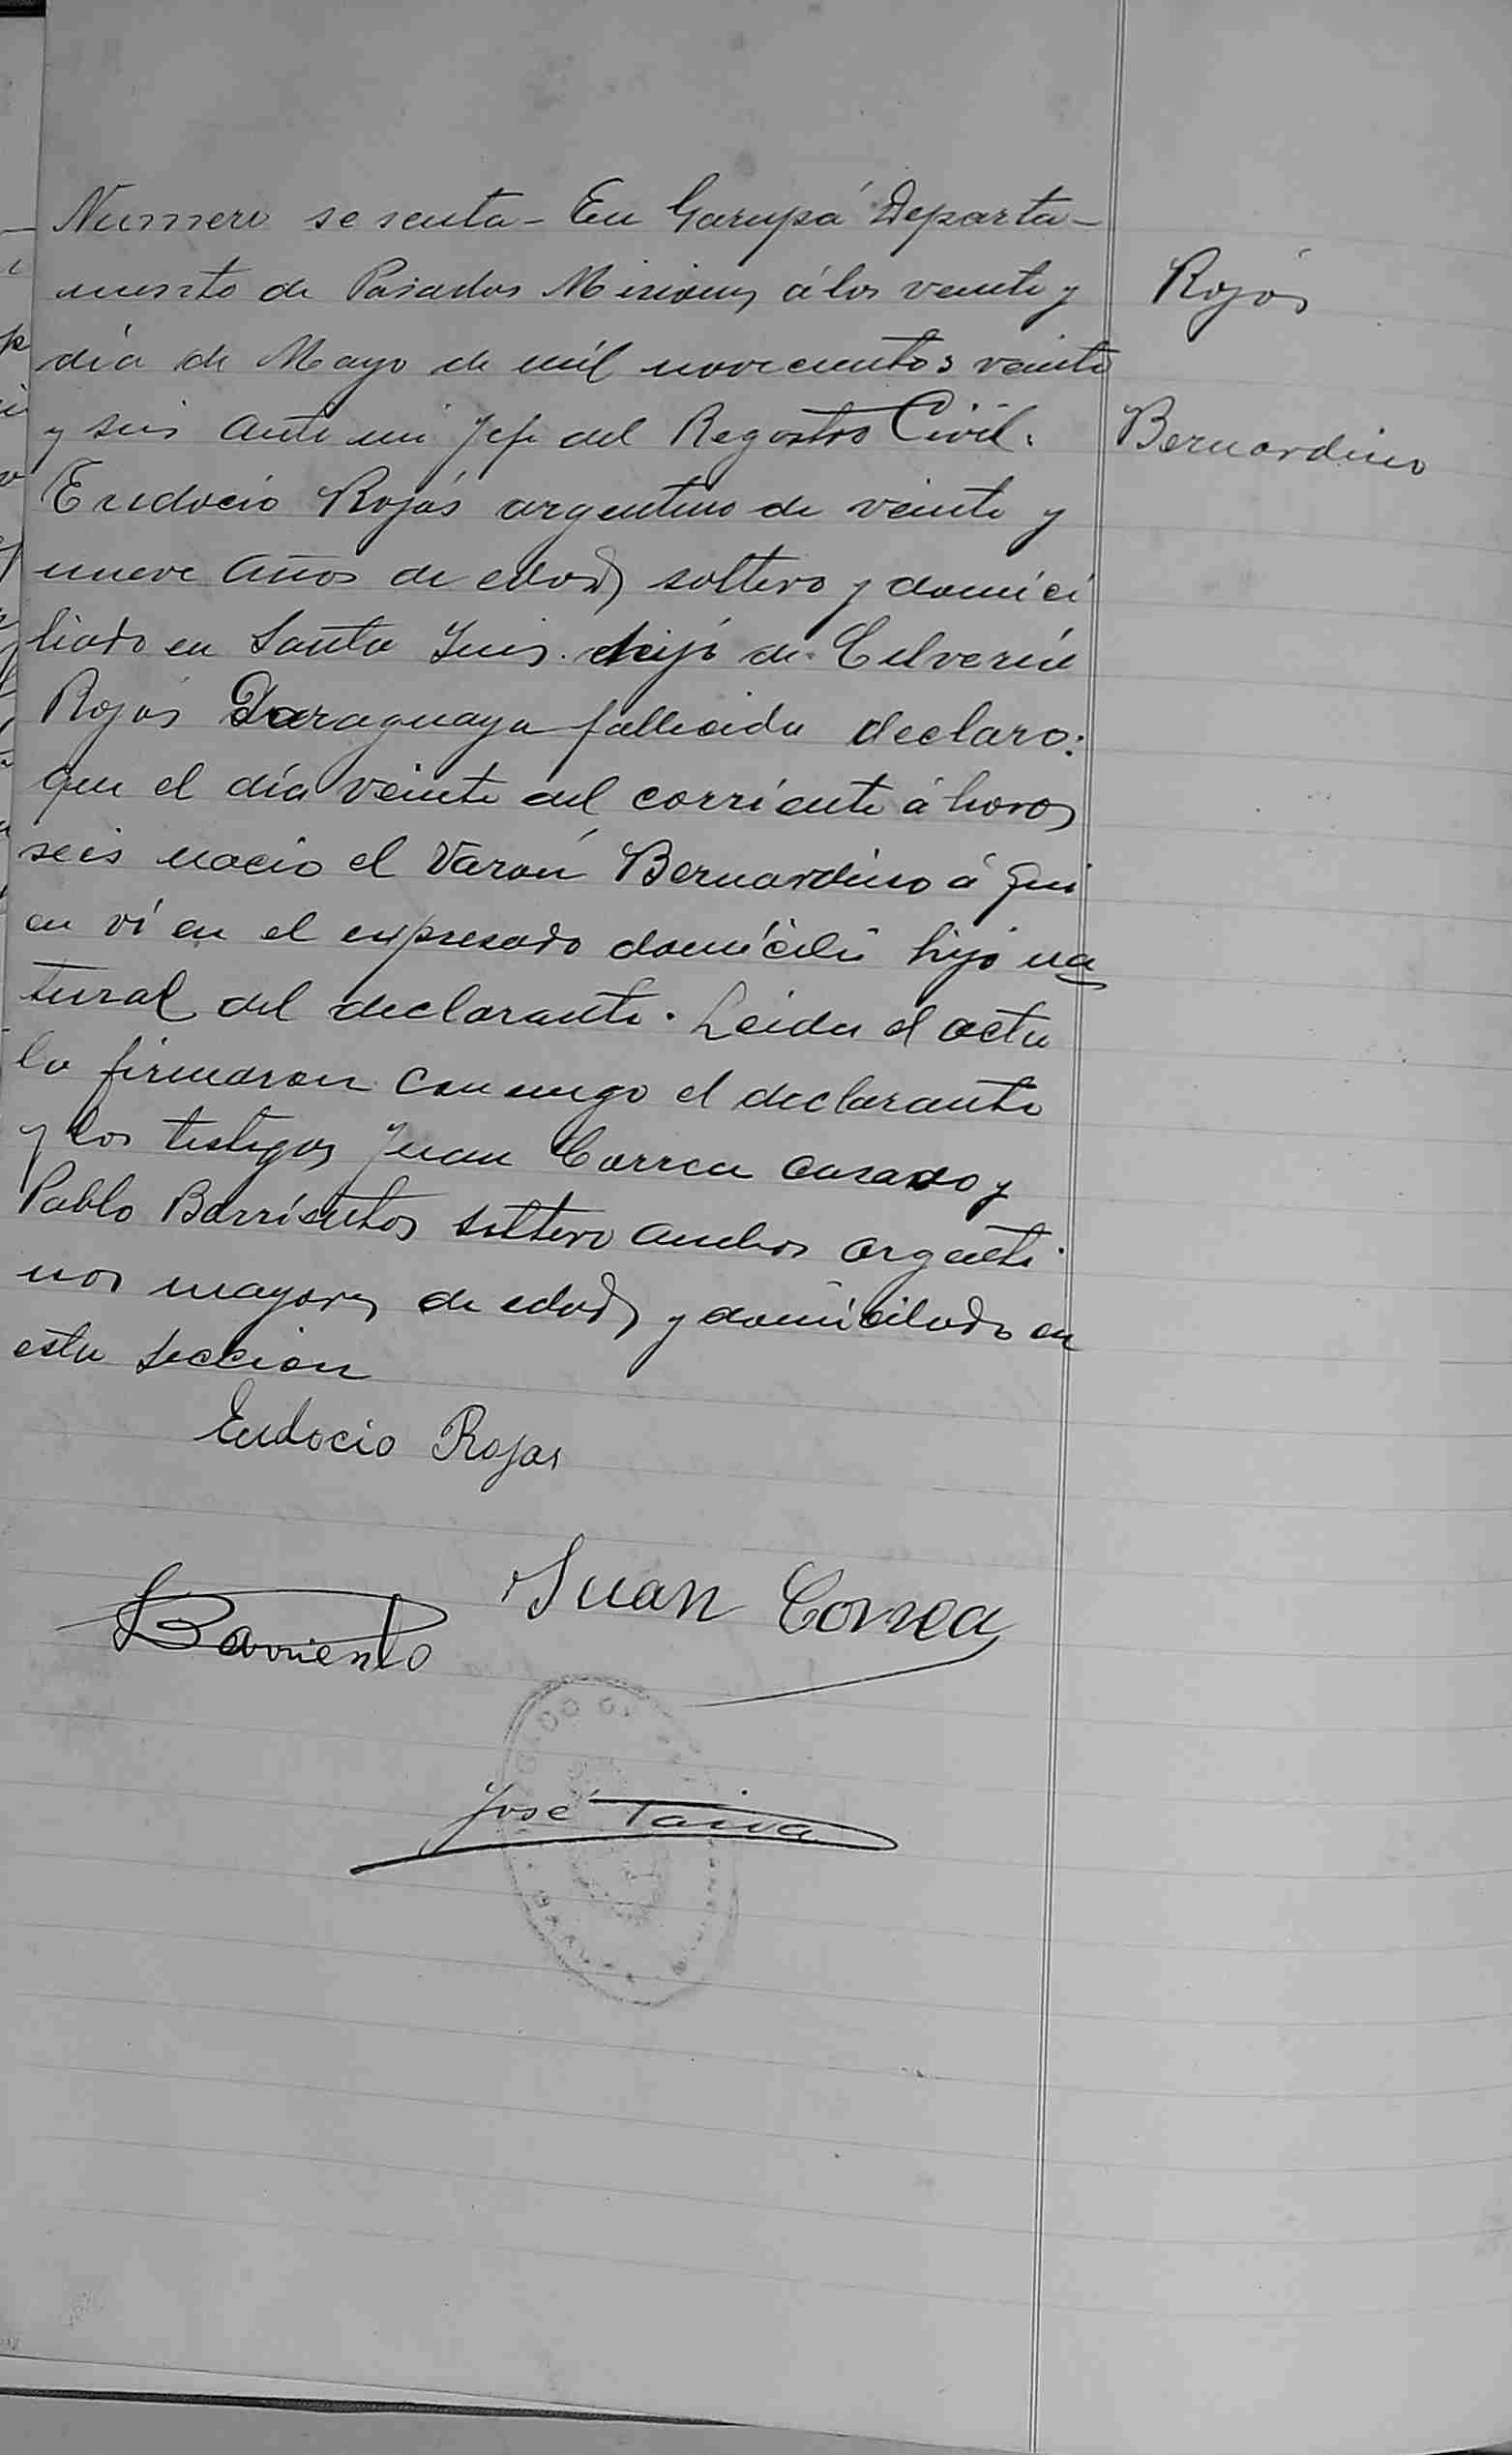 Numero sesenta - En Garupá Departa-
mento de Posadas Misiones á los veinte y
día de Mayo de mil novecientos veinte
y seis ante mi Jefe del Registro Civil.
Eudocio Rojás argentino de veinte y
nueve años de edad, soltero y domici
liado en Santa Ines. hijo de
Rojas Paraguaya fallecida declaro:
que el día veinte del corriente á horas
seis nacio el Varón Bernardino á qui
en ví en el expresado domicilio hijo na
tural del declarante. Leida el acta
la firmaron conmigo el declarante
y los testigos Juan Correa casado y
Pablo Barrientos soltero ambos argenti
nos mayores de edad, y domicilado en
esta seccion
Eudocio Rojas
Juan Correa
Barriento
José Paiva
Rojás
Bernardino